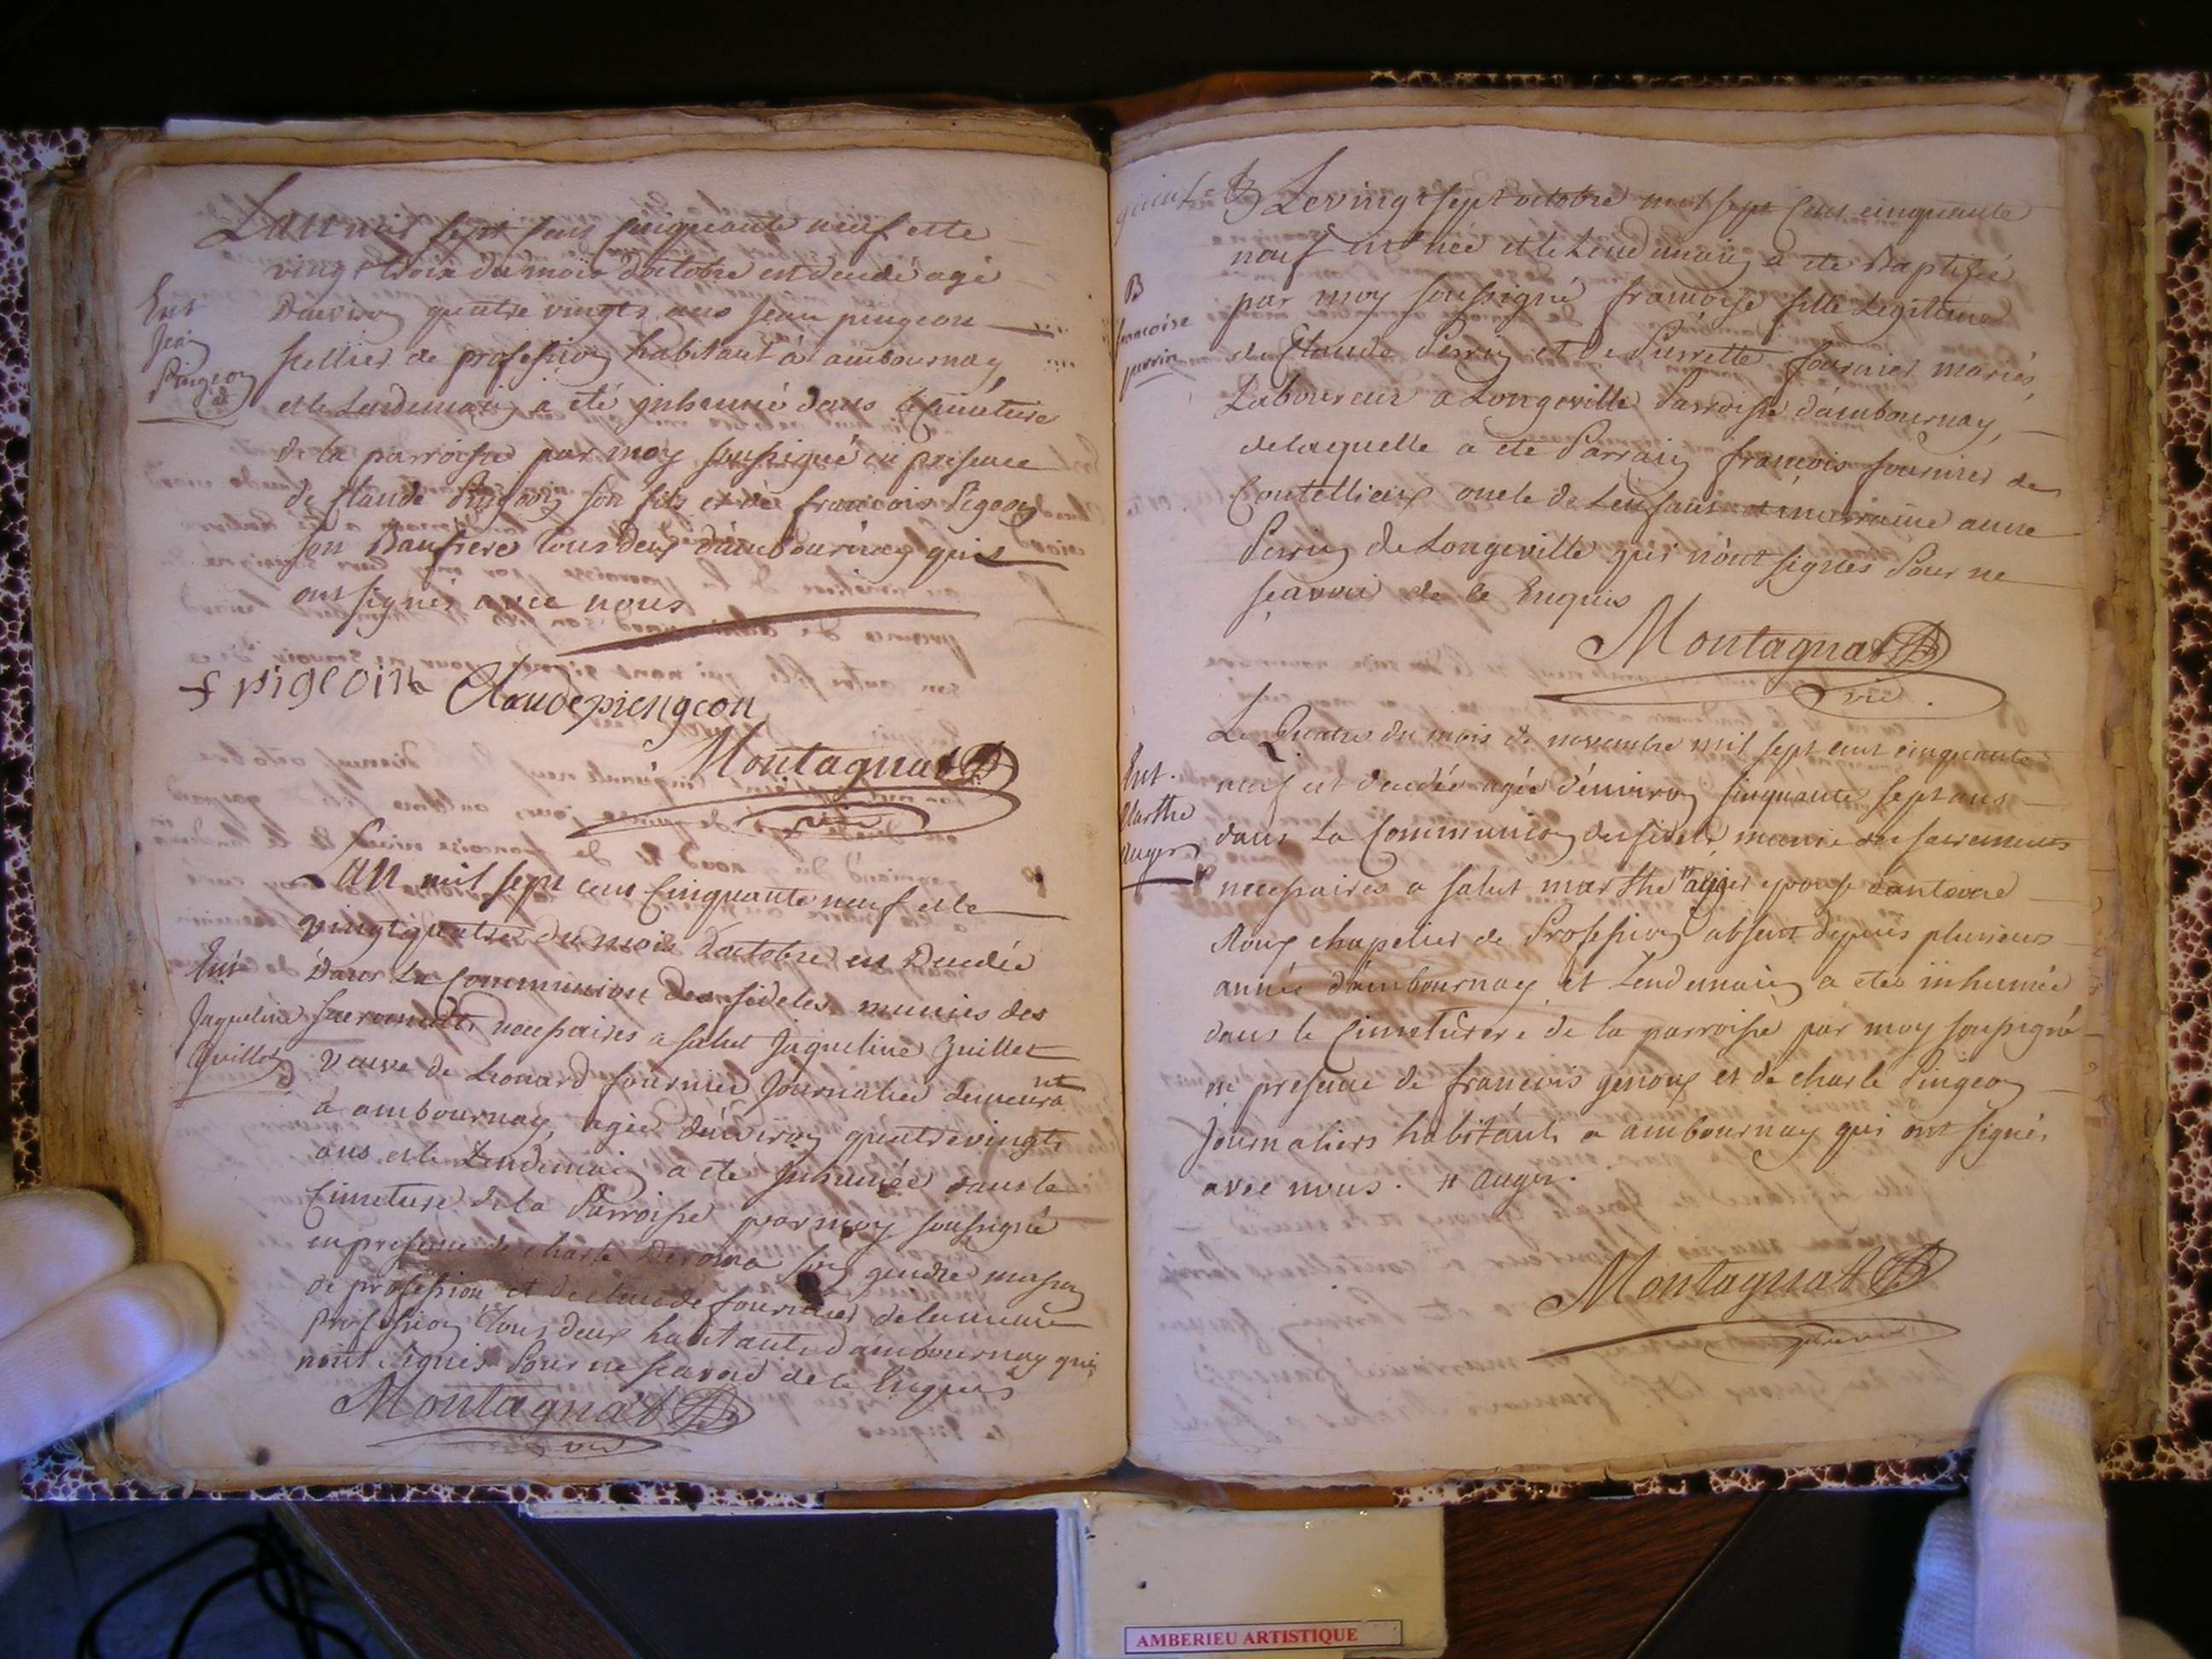 L'an mil sept cens cinquante neuf et le
vingt trois du mois d'octobre est décédé agé
Ent
Jean
Pingeon
d'environ quatre vingts ans Jean pingeon
sellier de profession habitant à ambournay
et le Lendemain a été inhumé dans le cimetiere
de la parroisse par moy soussigné en presence
de Claude Pingeon son fils et de francois Pigeon
son Baufrere tous deux d'ambournay qui
ont signés avec nous
f pigeoin Claude piengeon
Montagnat
vic
L'an mil sept cens Cinquante neuf et le
vingt quatre du mois d'octobre est Decedée
Ent
Jaqueline
Guillet
dans La Communion des fideles munies des
sacrements necessaires a salut Jaqueline Guillet
veuve de Leonard fournier Journalier demeurant
a ambournay, agée d'environ quatrevingts
ans et le Lendemain a été inhumée dans le
Cimetiere de la Parroisse par moy soussigné
en presence de charle son gendre masson
de profession et de claude fournier de la meme
profession Tous deux habitants d'ambournay qui
n'ont signés Pour ne scavoir de ce Enquis
Montagnat
vic
Le vingt sept octobre mil sept Cens cinquante
neuf est née et le Lendemain a été Baptisée
B
francoise
perrin
par moy soussigné francoise fille Legitime
de Claude Perrin et de Pierrette fournier mariés
Laboureur a Longeville Parroisse d'ambournay,
de laquelle a été Parrain francois fournier de
Contellieux oncle de Lenfant et marraine anne
Perrin de Longeville qui n'ont signés Pour ne
scavoir de ce Enquis
Montagnat
vic.
Le Quatre du mois de novembre mil sept cens cinquante
Ent.
Marthe
Auger
neuf est decedée agée d'environ cinquante sept ans
dans La Communion des fidels munie des sacrements
necessaires a salut marthe # auger epouse d'antoine
Roux chapelier de Profession absent depuis plusieurs
année d'ambournay et Lendemain a etée inhumée
dans le Cimetierere de la parroisse par moy soussigné
en presence de francois genoux et de charle Pingeon
Journaliers habitants a ambournay qui ont signés
avec nous. # auger.
Montagnat
AMBERIEU ARTISTIQUE